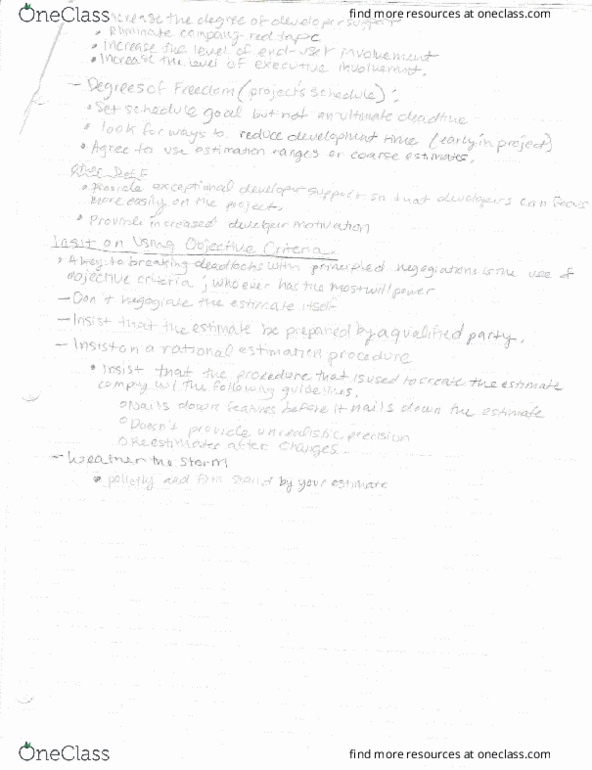 OneClass
find more resources at oneclass.com
increase the degree of developer support
• Eliminate company red tape
• Increase the level of end-user involvement
• Increase the level of executive involvement.
– Degrees of Freedom (project's schedule):
• Set schedule goal but not an ultimate deadline
• look for ways to reduce development time (early in project)
• Agree to use estimation ranges or coarse estimates.
• Provide exceptional developer support so that developers can focus
more easily on the project.
• Provide increased developer motivation
Insist on Using Objective Criteria
• A key to breaking deadlocks with principled negogiations is the use of
objective criteria; who ever has the most will power
– Don't negogiate the estimate itself
– Insist that the estimate be prepared by a qualified party.
– Insist on a rational estimation procedure
• Insist that the procedure that is used to create the estimate
comply w/ the following guidelines.
o Nails down features before it nails down the estimate
o Doesn't provide unrealistic precision
o Reestimates after changes
– Weather the storm
• politely and firm stand by your estimate
OneClass
find more resources at oneclass.com